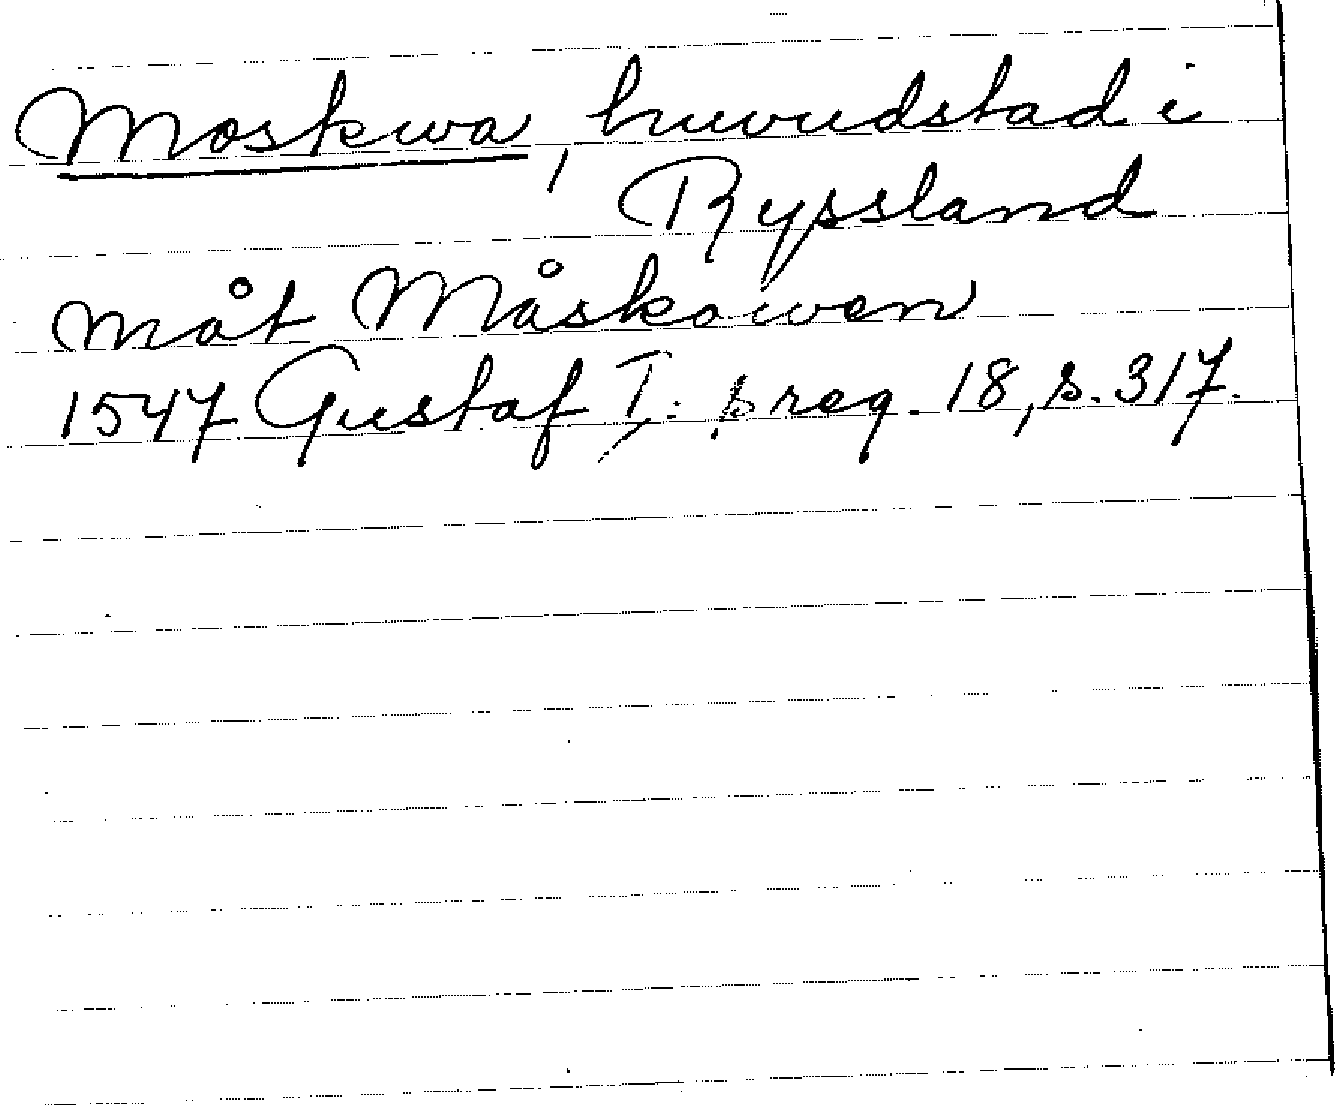 Moskwa, huvudstad i
Ryssland
måt Måskowen
1547 Gustaf I:s reg. 18, s. 317.